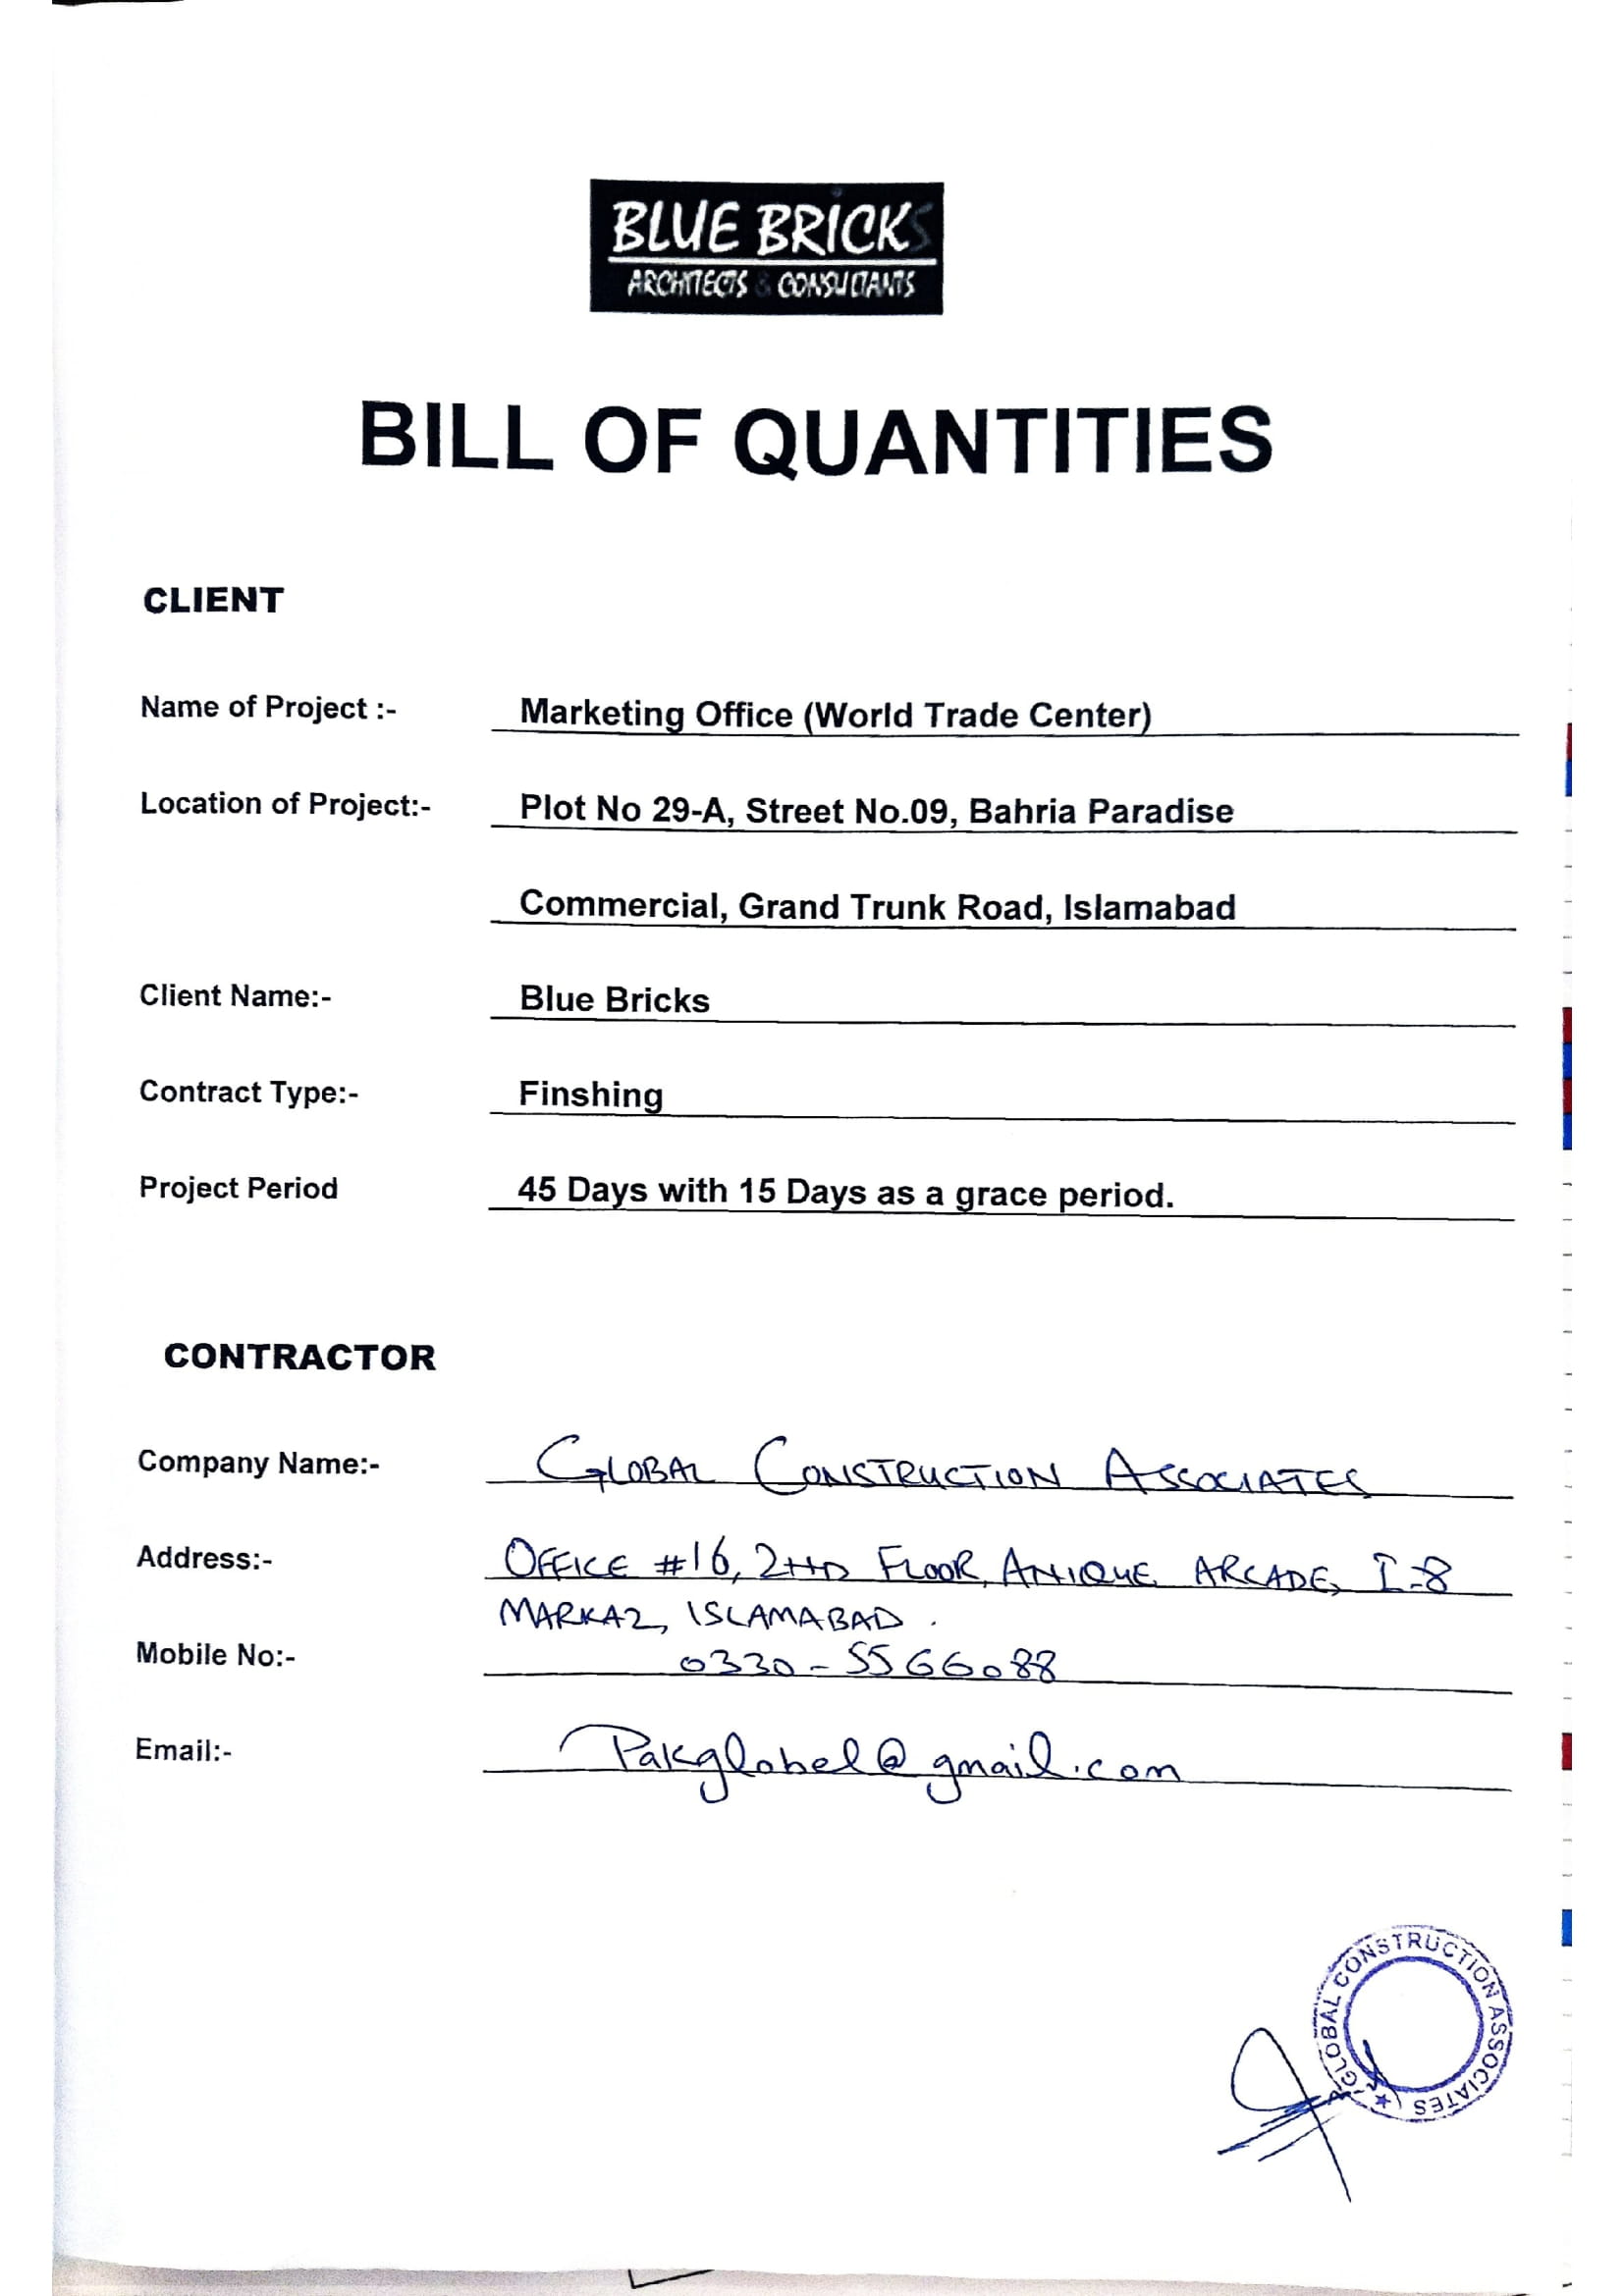 BLUE BRICKS
ARCHITECTS & CONSULTANTS
BILL OF QUANTITIES
CLIENT
Name of Project :- Marketing Office (World Trade Center)
Location of Project:- Plot No 29-A, Street No.09, Bahria Paradise
Commercial, Grand Trunk Road, Islamabad
Client Name:- Blue Bricks
Contract Type:- Finshing
Project Period 45 Days with 15 Days as a grace period.
CONTRACTOR
Company Name:- GLOBAL CONSTRUCTION ASSOCIATES
Address:- OFFICE #16, 2ND FLOOR, ANIQUE ARCADE, I-8
MARKAZ, ISLAMABAD.
Mobile No:- 0330-5566088
Email:- Pakglobel@gmail.com
GLOBAL CONSTRUCTION ASSOCIATES